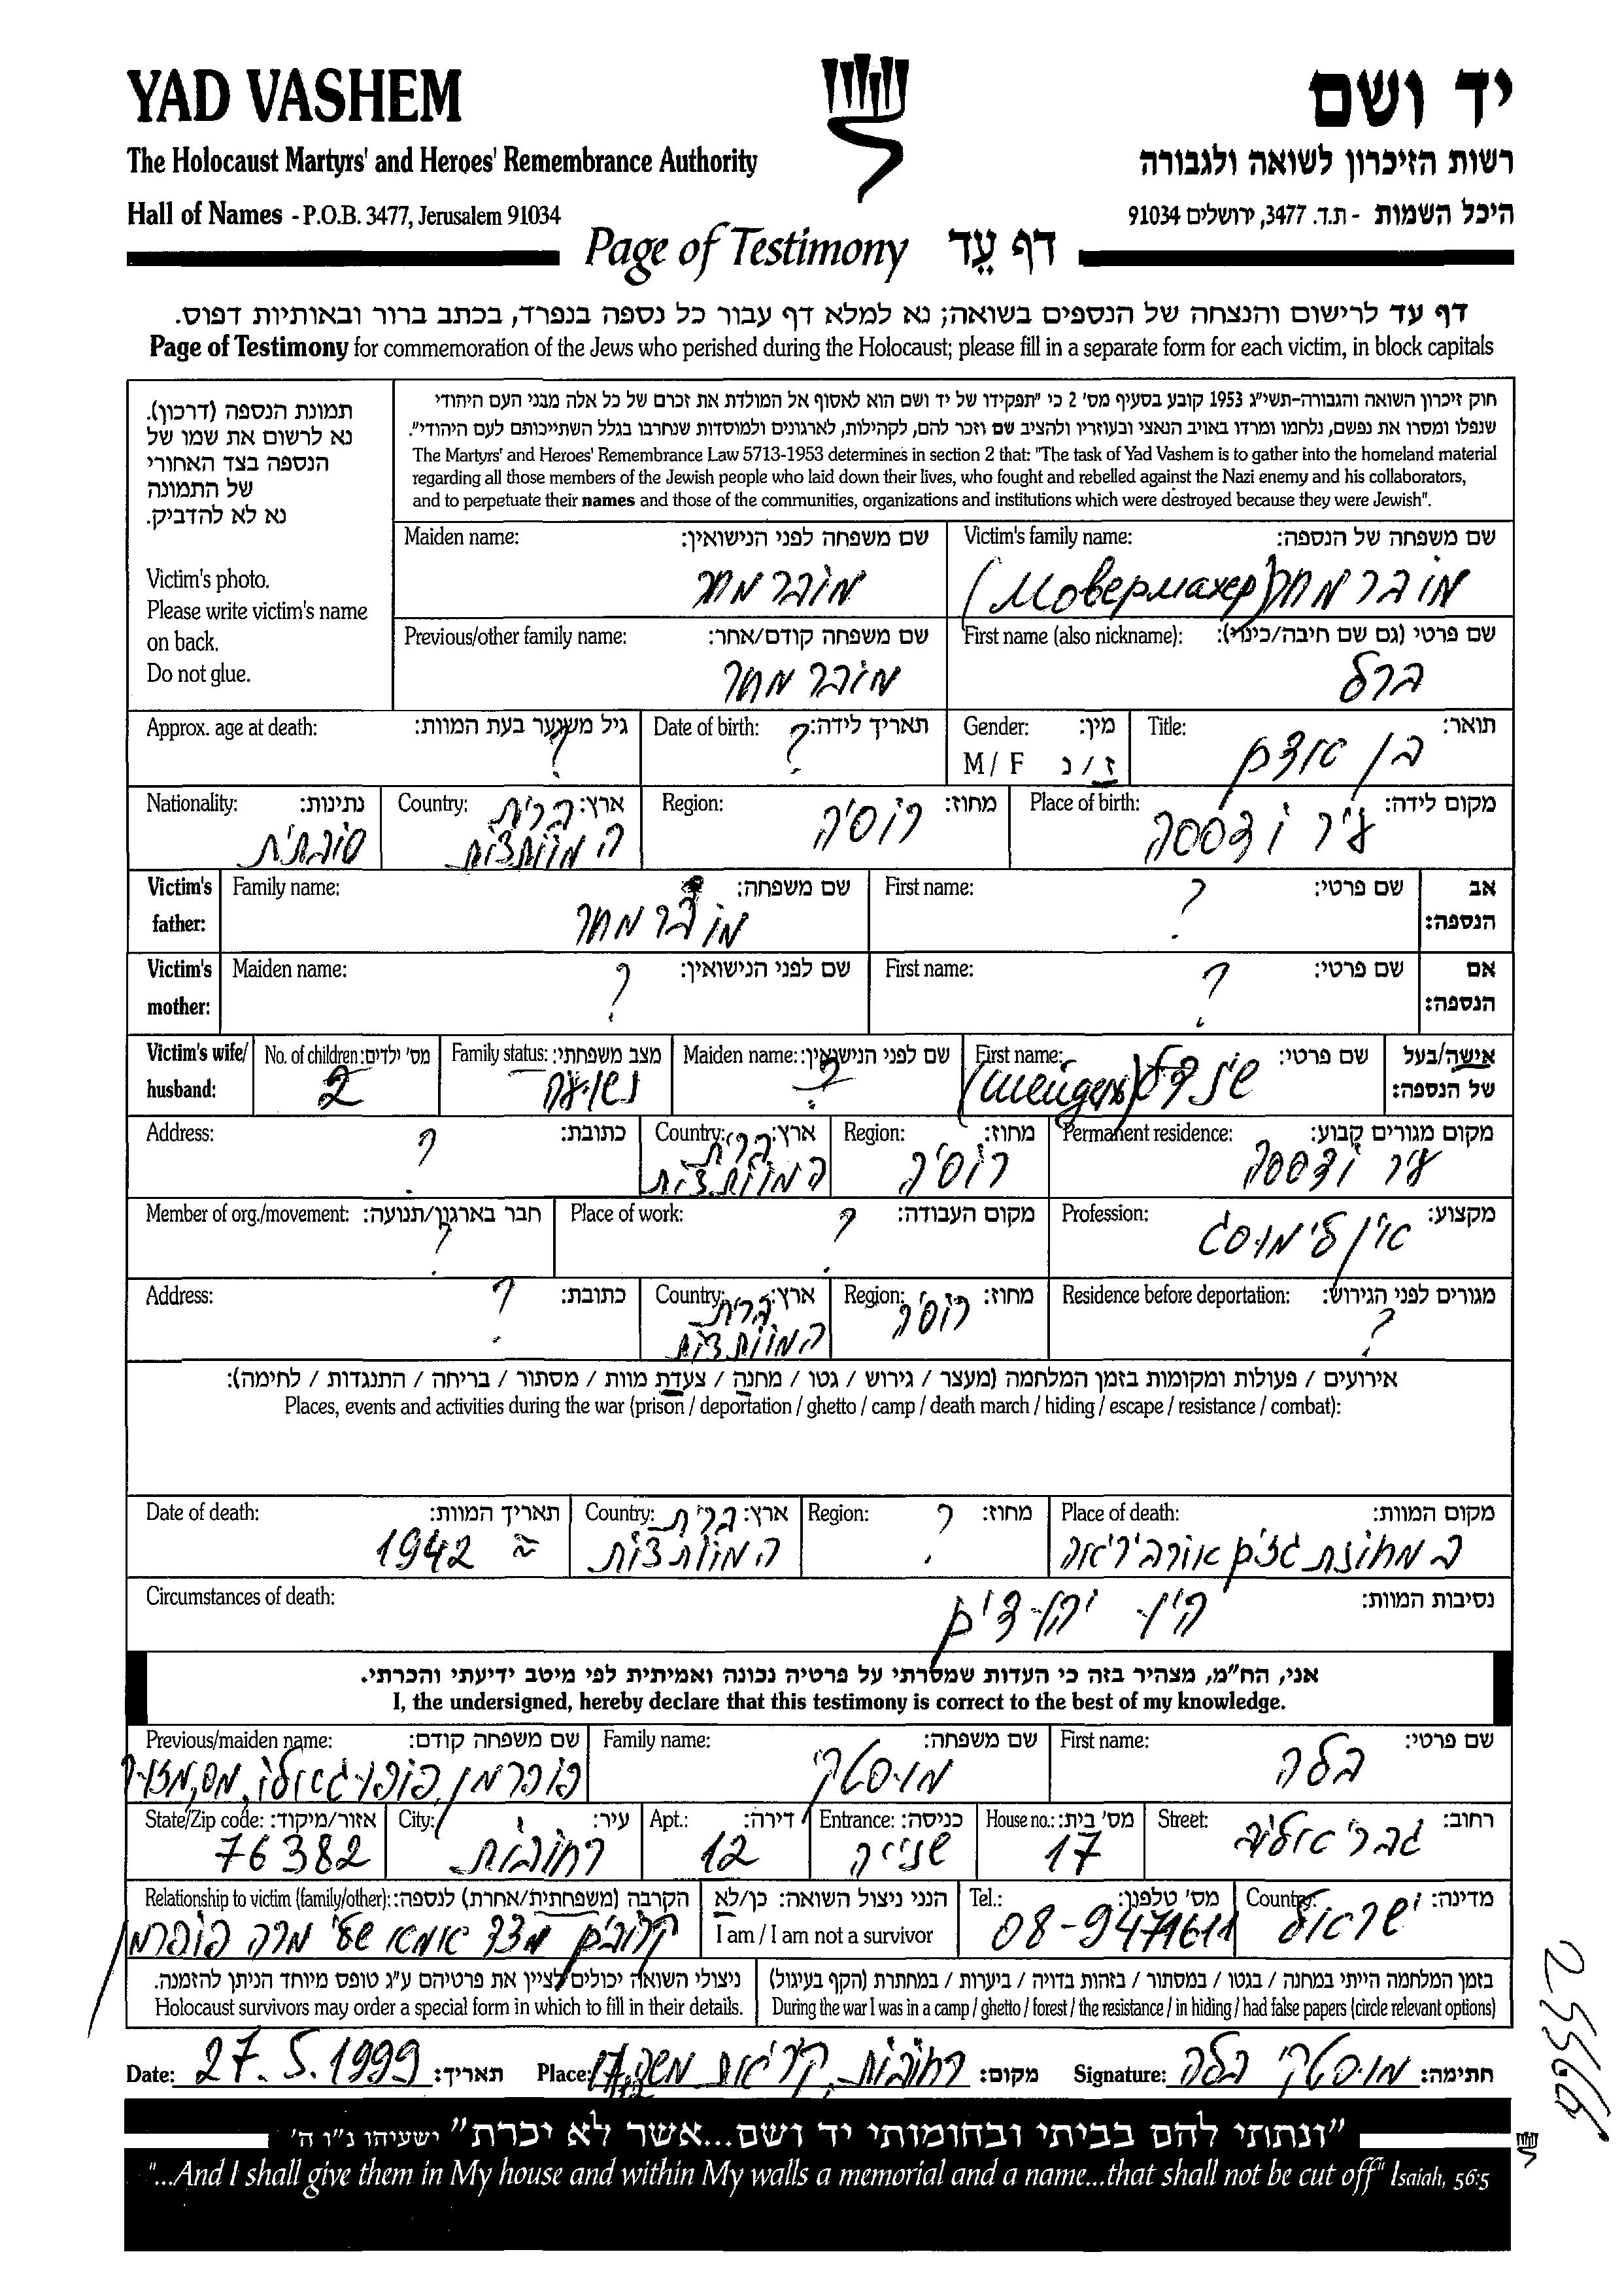 YAD VASHEM
יד ושם
The Holocaust Martyrs' and Heroes' Remembrance Authority
רשות הזיכרון לשואה ולגבורה
Hall of Names - P.O.B. 3477, Jerusalem 91034
היכל השמות - ת.ד. 3477, ירושלים 91034
Page of Testimony דף עֵד
דף עד לרישום והנצחה של הנספים בשואה; נא למלא דף עבור כל נספה בנפרד, בכתב ברור ובאותיות דפוס.
Page of Testimony for commemoration of the Jews who perished during the Holocaust; please fill in a separate form for each victim, in block capitals
תמונת הנספה (דרכון).
נא לרשום את שמו של
הנספה בצד האחורי
של התמונה
נא לא להדביק.
Victim's photo.
Please write victim's name
on back.
Do not glue.
חוק זיכרון השואה והגבורה-תשי"ג 1953 קובע בסעיף מס' 2 כי "תפקידו של יד ושם הוא לאסוף אל המולדת את זכרם של כל אלה מבני העם היהודי
שנפלו ומסרו את נפשם, נלחמו ומרדו באויב הנאצי ובעוזריו ולהציב שם וזכר להם, לקהילות, לארגונים ולמוסדות שנחרבו בגלל השתייכותם לעם היהודי".
The Martyrs' and Heroes' Remembrance Law 5713-1953 determines in section 2 that: "The task of Yad Vashem is to gather into the homeland material
regarding all those members of the Jewish people who laid down their lives, who fought and rebelled against the Nazi enemy and his collaborators,
and to perpetuate their names and those of the communities, organizations and institutions which were destroyed because they were Jewish".
Victim's family name: שם משפחה של הנספה:
מוברמחר (Мовермахер)
Maiden name: שם משפחה לפני הנישואין:
מוברמחר
First name (also nickname): שם פרטי (גם שם חיבה/כינוי):
ברל
Previous/other family name: שם משפחה קודם/אחר:
מוברמחר
Title: תואר:
בן אדם
Gender: מין:
M / F ז / נ
Date of birth: תאריך לידה:
?
Approx. age at death: גיל משוער בעת המוות:
?
Place of birth: מקום לידה:
עיר אודססה
Region: מחוז:
רוסיה
Country: ארץ:
ברית
המועצות
Nationality: נתינות:
סובתית
Victim's father: אב הנספה:
First name: שם פרטי:
?
Family name: שם משפחה:
מוברמחר
Victim's mother: אם הנספה:
First name: שם פרטי:
?
Maiden name: שם לפני הנישואין:
?
Victim's wife/ husband: אישה/בעל של הנספה:
First name: שם פרטי:
שינדל (Шейндел)
Maiden name: שם לפני הנישואין:
?
Family status: מצב משפחתי:
No. of children: מס' ילדים:
2
Permanent residence: מקום מגורים קבוע:
עיר אודססה
Region: מחוז:
רוסיה
Country: ארץ:
ברית
המועצות
Address: כתובת:
?
Profession: מקצוע:
אין לי מוסג
Place of work: מקום העבודה:
?
Member of org./movement: חבר בארגון/תנועה:
?
Residence before deportation: מגורים לפני הגירוש:
?
Region: מחוז:
רוסיה
Country: ארץ:
ברית
המועצות
Address: כתובת:
?
אירועים / פעולות ומקומות בזמן המלחמה (מעצר / גירוש / גטו / מחנה / צעדת מוות / מסתור / בריחה / התנגדות / לחימה):
Places, events and activities during the war (prison / deportation / ghetto / camp / death march / hiding / escape / resistance / combat):
Place of death: מקום המוות:
Region: מחוז:
?
Country: ארץ:
ברית
המועצות
Date of death: תאריך המוות:
≈ 1942
Circumstances of death: נסיבות המוות:
היו יהודים
אני, הח"מ, מצהיר בזה כי העדות שמסרתי על פרטיה נכונה ואמיתית לפי מיטב ידיעתי והכרתי.
I, the undersigned, hereby declare that this testimony is correct to the best of my knowledge.
First name: שם פרטי:
בלה
Family name: שם משפחה:
מוסטקי
Previous/maiden name: שם משפחה קודם:
Street: רחוב:
House no.: מס' בית:
17
Entrance: כניסה:
שנייה
Apt.: דירה:
12
City: עיר:
רחובות
State/Zip code: אזור/מיקוד:
76382
Country: מדינה:
ישראל
Tel.: מס' טלפון:
08-9471611
הנני ניצול השואה: כן/לא
I am / I am not a survivor
Relationship to victim (family/other): הקרבה (משפחתית/אחרת) לנספה:
קרובים מצד אמא שלי
בזמן המלחמה הייתי במחנה / בגטו / במסתור / בזהות בדויה / ביערות / במחתרת (הקף בעיגול)
During the war I was in a camp / ghetto / forest / the resistance / in hiding / had false papers (circle relevant options)
ניצולי השואה יכולים לציין את פרטיהם ע"ג טופס מיוחד הניתן להזמנה.
Holocaust survivors may order a special form in which to fill in their details.
Date: 27.5.1999 תאריך:
Place: רחובות, קריאת משה מקום:
Signature: מוסטקי בלה חתימה:
"ונתתי להם בביתי ובחומותי יד ושם...אשר לא יכרת" ישעיהו נ"ו ה'
"...And I shall give them in My house and within My walls a memorial and a name...that shall not be cut off" Isaiah, 56:5